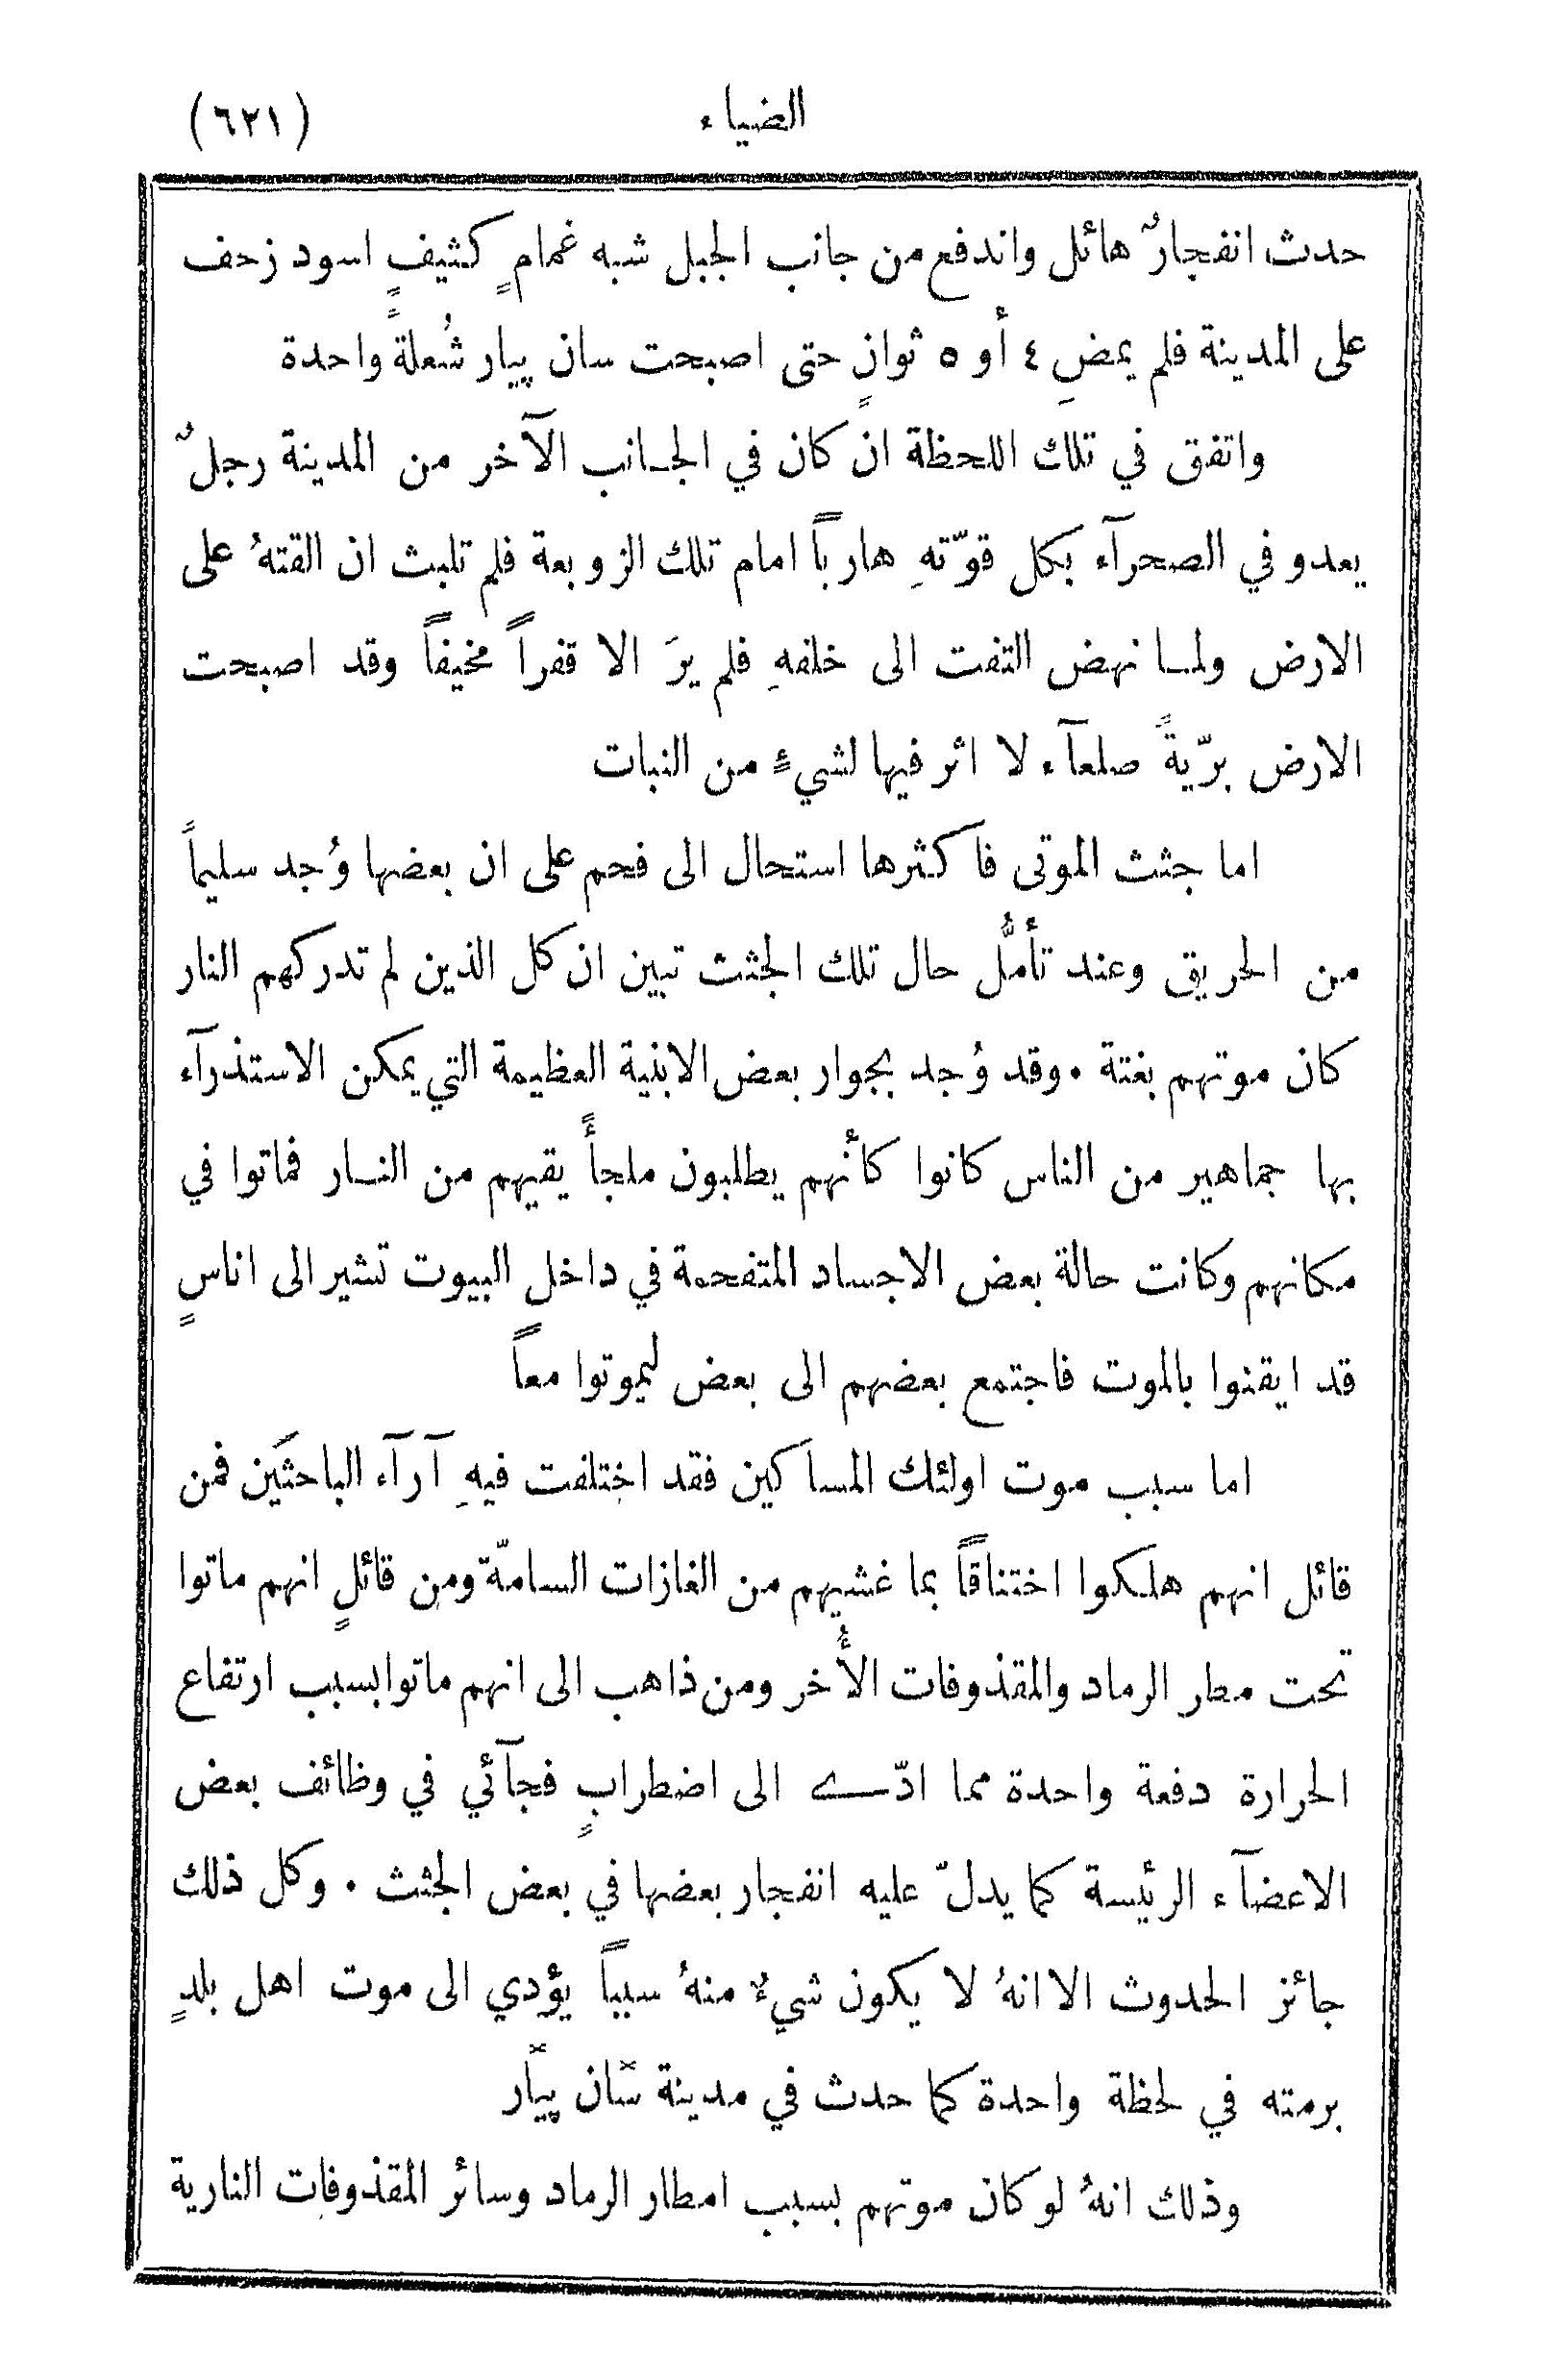 الضياء (٦٢١)
حدث انفجارٌ هائل واندفع من جانب الجبل شبه غمامٍ كثيفٍ اسود زحف
على المدينة فلم يمضِ ٤ أو ٥ ثوانٍ حتى اصبحت سان پيار شُعلةً واحدة
واتفق في تلك اللحظة ان كان في الجـانب الآخر من المدينة رجلٌ
يعدو في الصحرآء بكل قوّتهِ هارباً امام تلك الزوبعة فلم تلبث ان القتهُ على
الارض ولمـا نهض التفت الى خلفهِ فلم يرَ الا قفراً مخيفاً وقد اصبحت
الارض برّيةً صلعآء لا اثر فيها لشيءٍ من النبات
اما جثث الموتى فاكثرها استحال الى فحم على ان بعضها وُجد سليماً
من الحريق وعند تأمُّل حال تلك الجثث تبين ان كل الذين لم تدركهم النار
كان موتهم بغتة . وقد وُجد بجوار بعض الابنية العظيمة التي يمكن الاستذرآء
بها جماهير من الناس كانوا كأنهم يطلبون ملجأً يقيهم من النـار فماتوا في
مكانهم وكانت حالة بعض الاجساد المتفحمة في داخل البيوت تشير الى اناسٍ
قد ايقنوا بالموت فاجتمع بعضهم الى بعض ليموتوا معاً
اما سبب موت اولئك المساكين فقد اختلفت فيهِ آرآء الباحثين فمن
قائل انهم هلكوا اختناقاً بما غشيهم من الغازات السامّة ومن قائلٍ انهم ماتوا
تحت مطر الرماد والمقذوفات الأُخر ومن ذاهب الى انهم ماتوا بسبب ارتفاع
الحرارة دفعة واحدة مما ادّى الى اضطرابٍ فجآئي في وظائف بعض
الاعضآء الرئيسة كما يدلّ عليه انفجار بعضها في بعض الجثث . وكل ذلك
جائز الحدوث الا انهُ لا يكون شيءٌ منهُ سبباً يؤدي الى موت اهل بلدٍ
برمته في لحظة واحدة كما حدث في مدينة سان پيار
وذلك انهُ لو كان موتهم بسبب امطار الرماد وسائر المقذوفات النارية